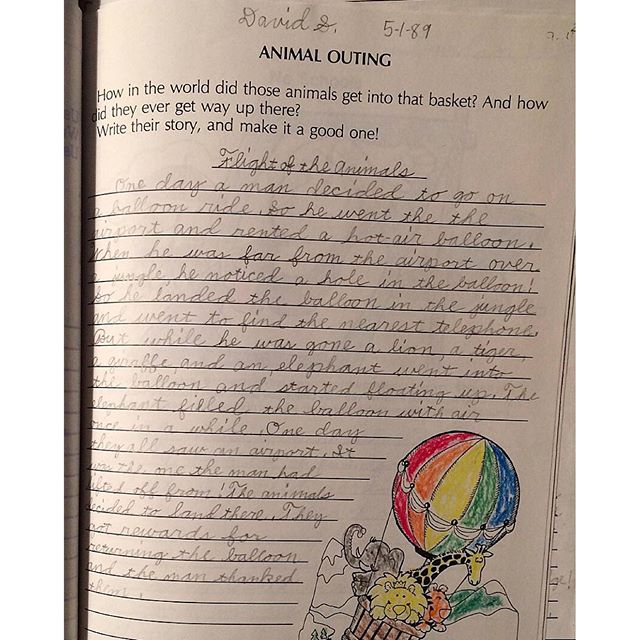 David S. 5-1-89
ANIMAL OUTING
How in the world did those animals get into that basket? And how
did they ever get way up there?
Write their story, and make it a good one!
Flight of the Animals
One day a man decided to go on
a balloon ride. So he went the the
airport and rented a hot-air balloon.
When he was far from the airport over
a jungle, he noticed a hole in the balloon!
So he landed the balloon in the jungle
and went to find the nearest telephone.
But while he was gone a lion, a tiger,
a giraffe, and an elephant went into
the balloon and started floating up. The
elephant filled the balloon with air
once in a while. One day
they all saw an airport. It
was the one the man had
lifted off from! The animals
decided to land there. They
got rewards for
returning the balloon
and the man thanked
them.